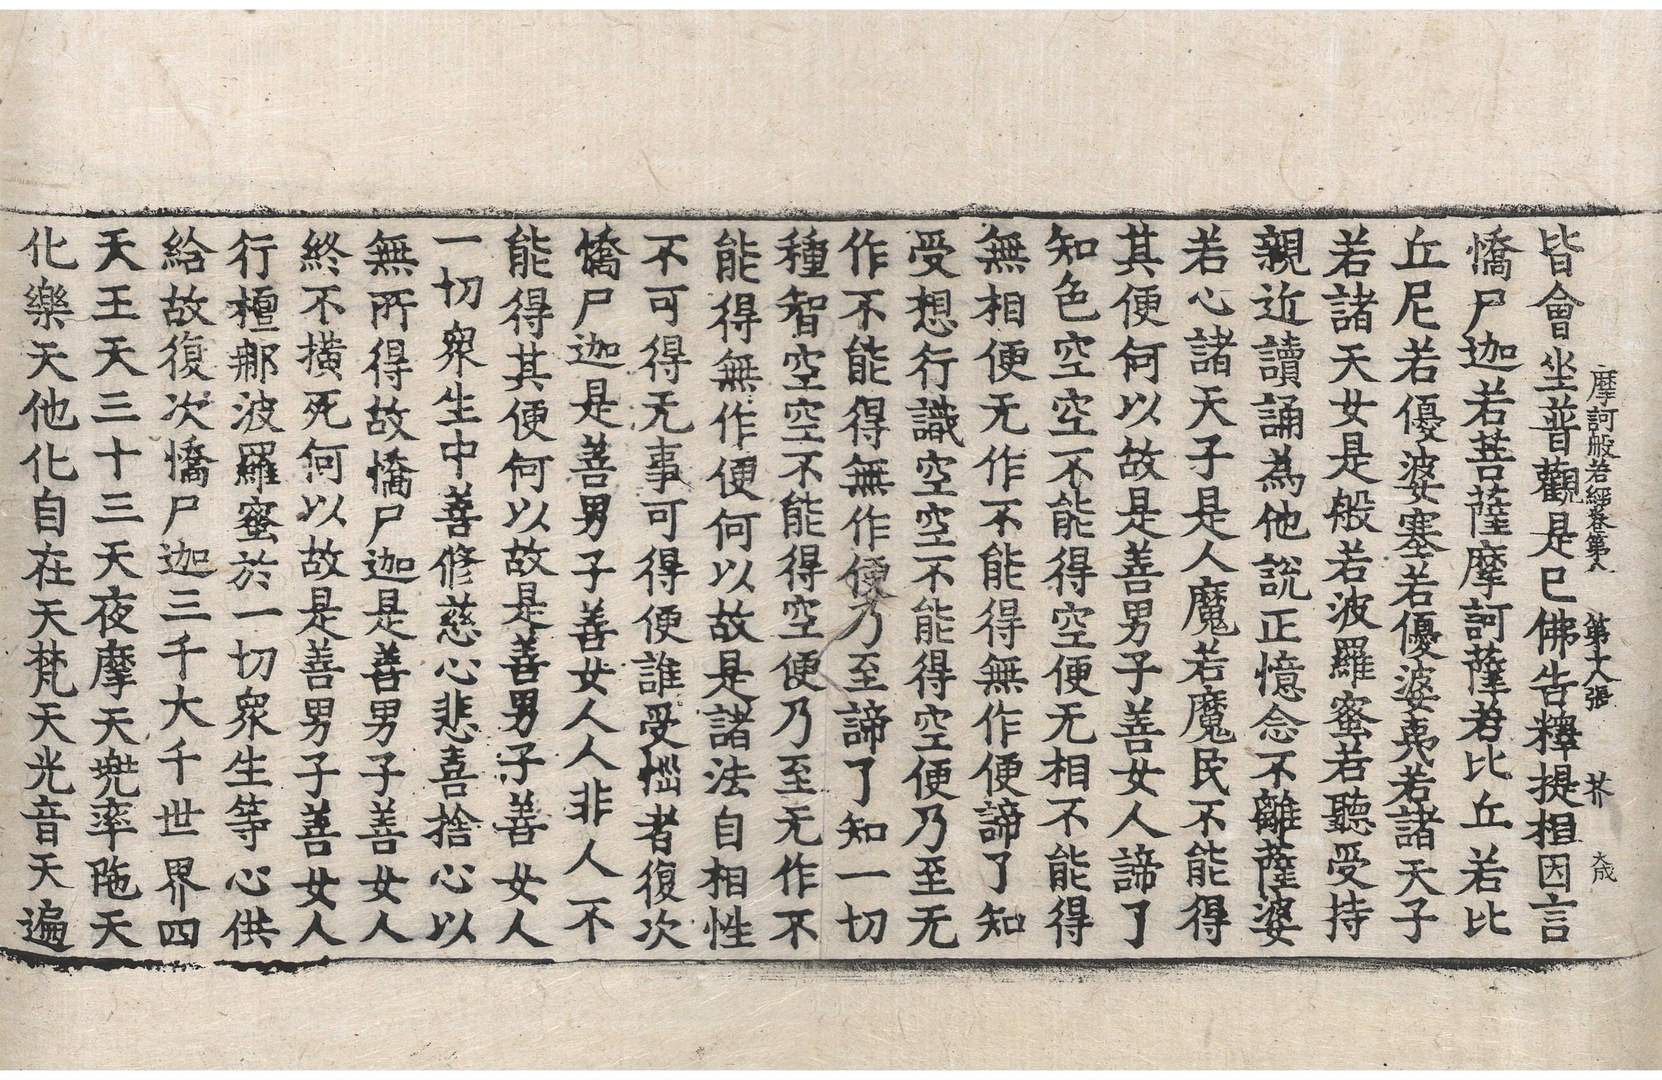 摩訶般若經卷第八 第十六張 芥 大成
皆會坐普觀是已佛告釋提桓因言
憍尸迦若菩薩摩訶薩若比丘若比
丘尼若優婆塞若優婆夷若諸天子
若諸天女是般若波羅蜜若聽受持
親近讀誦為他說正憶念不離薩婆
若心諸天子是人魔若魔民不能得
其便何以故是善男子善女人諦了
知色空空不能得空便无相不能得
無相便无作不能得無作便諦了知
受想行識空空不能得空便乃至无
作不能得無作便乃至諦了知一切
種智空空不能得空便乃至无作不
能得無作便何以故是諸法自相性
不可得无事可得便誰受惱者復次
憍尸迦是善男子善女人人非人不
能得其便何以故是善男子善女人
一切衆生中善修慈心悲喜捨心以
無所得故憍尸迦是善男子善女人
終不橫死何以故是善男子善女人
行檀那波羅蜜於一切衆生等心供
給故復次憍尸迦三千大千世界四
天王天三十三天夜摩天兜率陁天
化樂天他化自在天梵天光音天遍